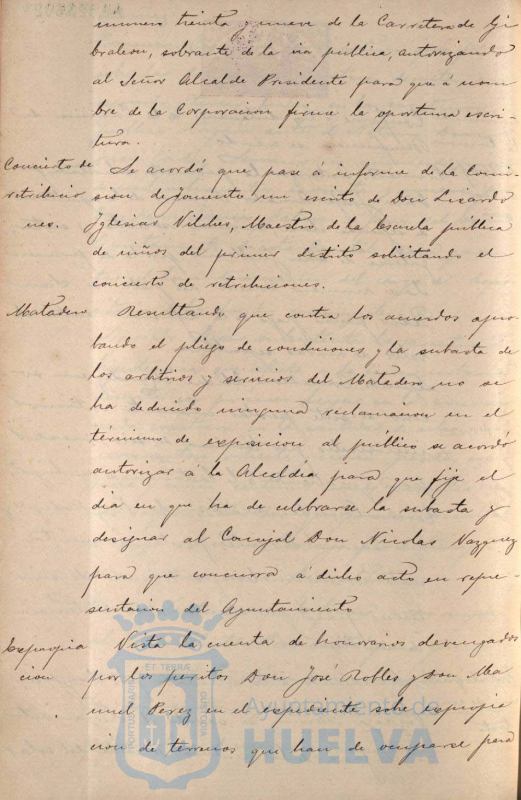 numero treinta y nueve de la Carretera de Gi
braleon, sobrante de la via pública, autorizando
al Señor Alcalde Presidente para que á nom-
bre de la Corporacion firme la oportuna escri-
tura.
Concierto de
retribucio
nes.
Se acordó que pase á informe de la Comi
sion de Fomento un escrito de Don Lizardo
Iglesias Vilches, Maestro de la Escuela pública
de niños del primer distrito solicitando el
concierto de retribuciones.
Matadero
Resultando que contra los acuerdos apro-
bando el pliego de condiciones y la subasta de
los arbitrios y servicios del Matadero no se
ha deducido ninguna reclamacion en el
término de exposicion al público se acordó
autorizar á la Alcaldía para que fije el
dia en que ha de celebrarse la subasta y
designar al Concejal Don Nicolas Vazquez
para que concurra á dicho acto en repre-
sentacion del Ayuntamiento
Expropia
cion
Vista la cuenta de honorarios devengados
por los peritos Don José Robles y Don Ma
nuel Perez en el expediente sobre expropia
cion de terrenos que han de ocuparse para
Ayuntamiento de
HUELVA